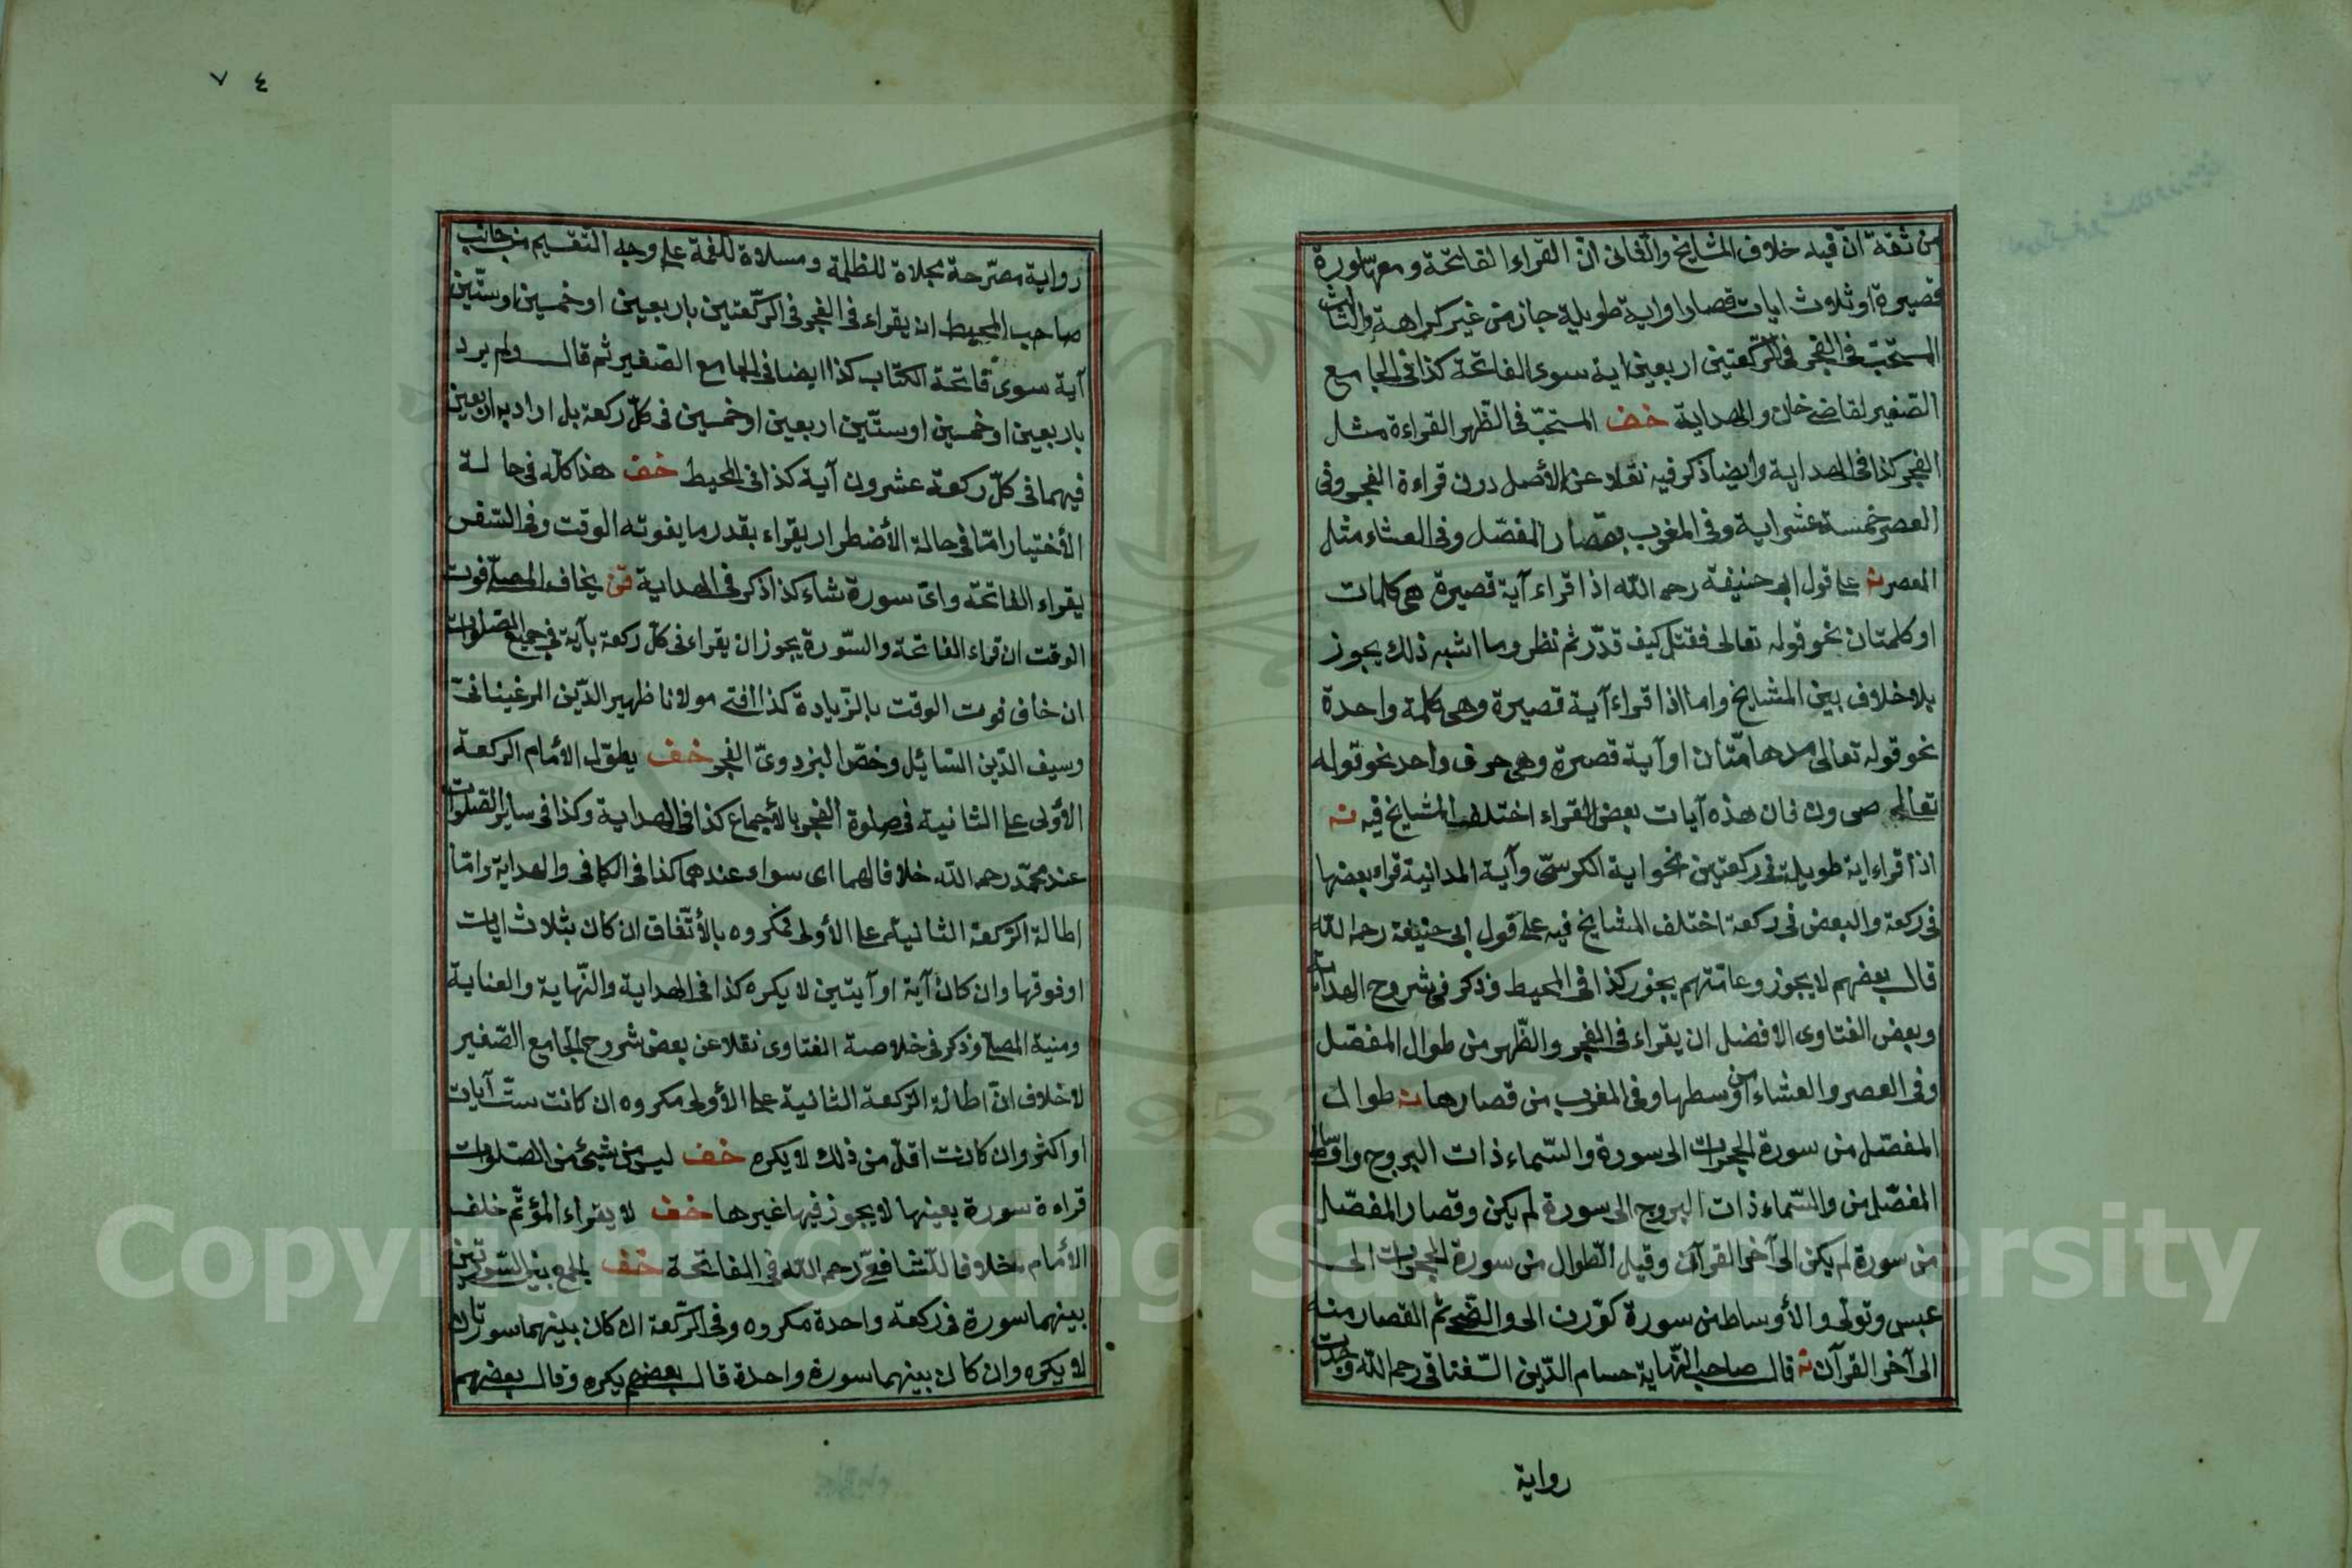 من ثقة انّ فيه خلاف المشايخ والثانى انّ القراء الفاتحة ومعها سورة
قصيرة او ثلاث ايات قصار او اية طويلة جاز من غير كراهة والثالث
المستحبّ فى الفجر فى الرّكعتين اربعين اية سوى الفاتحة كذا فى الجامع
الصّغير لقاضى خان والهداية خف المستحبّ فى الظّهر القراءة مثل
الفجر كذا فى الهداية وايضا ذكر فيه نقلا عن الأصل دون قراءة الفجر وفى
العصر خمسة عشر اية وفى المغرب بقصار المفصّل وفى العشاء مثل
العصر ثم على قول ابى حنيفة رحمه اللّه اذا قراء آية قصيرة هى كلمات
او كلمتان نحو قوله تعالى فقتل كيف قدّر ثم نظر وما اشبه ذلك يجوز
بلا خلاف بين المشايخ واما اذا قراء آية قصيرة وهى كلمة واحدة
نحو قوله تعالى مدهامّتان او آية قصيرة وهى حرف واحد نحو قوله
تعالى ص ون فان هذه آيات بعض القراء اختلف المشايخ فيه نه
اذا قراء اية طويلة فى ركعتين نحو اية الكرسىّ وآية المداينة قراء بعضها
فى ركعة والبعض فى ركعة اختلف المشايخ فيه على قول ابى حنيفة رحمه اللّه
قال بعضهم لا يجوز وعامّتهم يجوز كذا فى المحيط وذكر فى شروح الهداية
وبعض الفتاوى الافضل ان يقراء فى الفجر والظّهر من طوال المفصّل
وفى العصر والعشاء من اوسطها وفى المغرب من قصارها نه طوال
المفصّل من سورة الحجرات الى سورة والسّماء ذات البروج واوساط
المفصّل من والسّماء ذات البروج الى سورة لم يكن وقصار المفصّل
من سورة لم يكن الى آخر القرآن وقيل الطّوال من سورة الحجرات الى
عبس وتولّى والأوساط من سورة كوّرت الى والضّحى ثم القصار منه
الى آخر القرآن نه قال صاحب النّهاية حسام الدّين السّغناقى رحمه اللّه وجدت
رواية
٧٤
رواية مصرّحة مجلاة للظلمة ومسلاة للغمّة على وجه التقسيم من جانب
صاحب المحيط ان يقراء فى الفجر فى الرّكعتين باربعين او خمسين او ستّين
آية سوى فاتحة الكتاب كذا ايضا فى الجامع الصّغير ثم قال ولم يرد
باربعين او خمسين او ستّين اربعين او خمسين فى كلّ ركعة بل اراد به اربعين
فيهما فى كلّ ركعة عشرون آية كذا فى المحيط خف هذا كلّه فى حالة
الأختيار امّا فى حالة الأضطرار يقراء بقدر ما يفوته الوقت وفى السّفر
يقراء الفاتحة واىّ سورة شاء كذا ذكر فى الهداية قن يخاف المصلّى فوت
الوقت ان قراء الفاتحة والسّورة يجوز ان يقراء فى كلّ ركعة بآية فى جميع الصّلوات
ان خاف فوت الوقت بالزّيادة كذا افتى مولانا ظهير الدّين المرغينانىّ
وسيف الدّين السّايل وخصّ البزدوىّ الفجر خف يطوّل الأمام الركعة
الأولى على الثانية فى صلوة الفجر بالأجماع كذا فى الهداية وكذا فى ساير الصّلوات
عند محمّد رحمه اللّه خلافا لهما اى سواء عندهما كذا فى الكافى والهداية وامّا
اطالة الرّكعة الثانية على الأولى فمكروه بالأتّفاق ان كان بثلاث ايات
او فوقها وان كان آية او آيتين لا يكره كذا فى الهداية والنّهاية والعناية
ومنية المصلّى وذكر فى خلاصة الفتاوى نقلا عن بعض شروح الجامع الصّغير
لا خلاف انّ اطالة الرّكعة الثانية على الأولى مكروه ان كانت ستّ آيات
او اكثر وان كانت اقلّ من ذلك لا يكره خف ليس من شيئ من الصّلوات
قراءة سورة بعينها لا يجوز فيها غيرها خف لا يقراء المؤتّم خلف
الأمام خلافا للشافعىّ رحمه اللّه فى الفاتحة خف الجمع بين السّورتين
بينهما سورة فى ركعة واحدة مكروه وفى الرّكعة ان كان بينهما سورتان
لا يكره وان كان بينهما سورة واحدة قال بعضهم يكره وقال بعضهم
Copyright © King Saud University